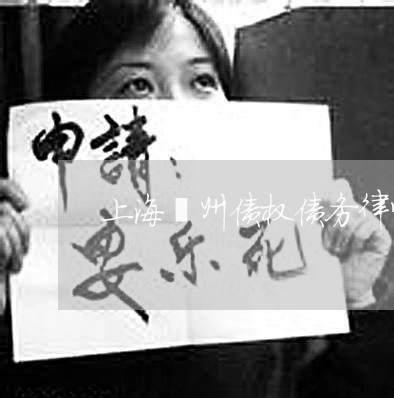 申請：
上海▮州债权债务律
安乐死